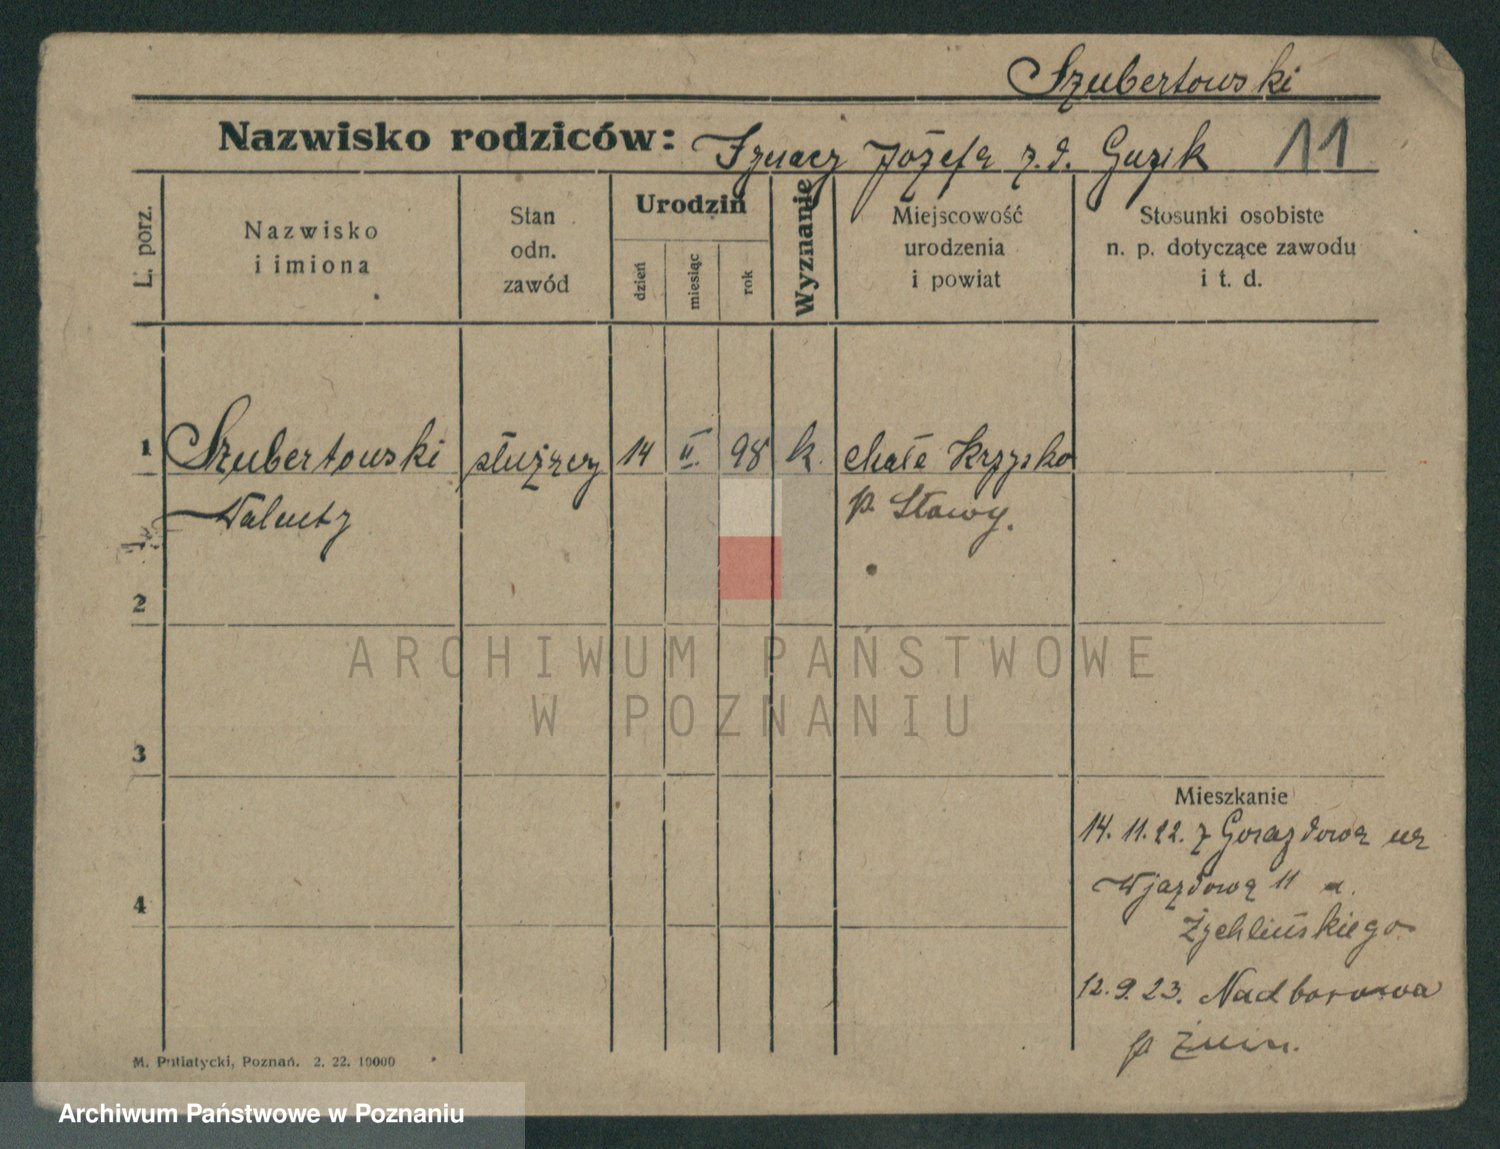 Szubertowski
Nazwisko rodziców: Ignacz Józefa z. d. Guzik 11
L. porz.
Nazwisko
i imiona
Stan
odn.
zawód
Urodzin
dzień
miesiąc
rok
Wyznanie
Miejscowość
urodzenia
i powiat
Stosunki osobiste
n. p. dotyczące zawodu
i t. d.
1 Szubertowski służący 14 II. 98 k. chałe Krzysko
Walenty p. Stawy.
2
3
4
Mieszkanie
14. 11. 22. z Gorazdowa na
Wjazdową 11 u.
Żychlińskiego
12. 9. 23. Nadborowa
p Żnin.
M. Putiatycki, Poznań. 2. 22. 10000
ARCHIWUM PAŃSTWOWE
W POZNANIU
Archiwum Państwowe w Poznaniu